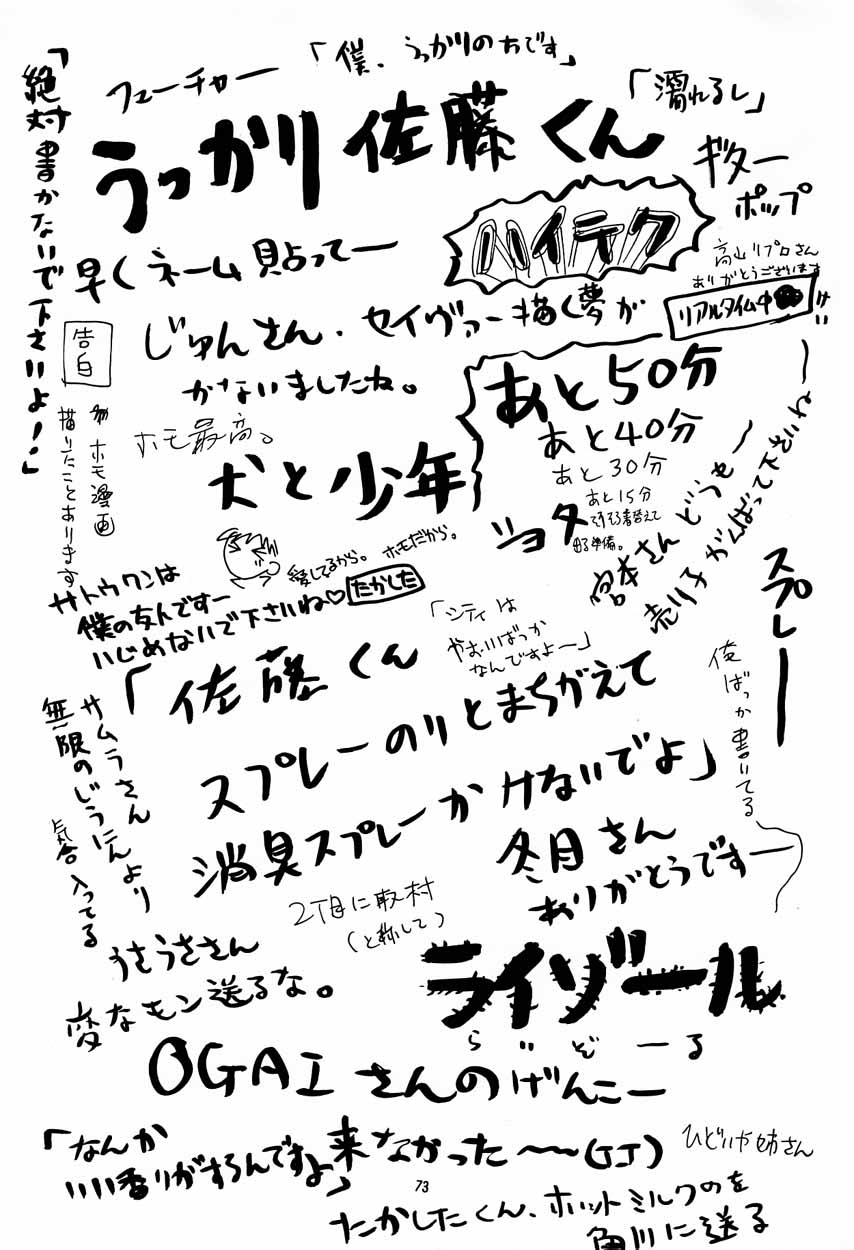 「絶対書かないで下さいよ！」
フューチャー
「僕、うっかりのちです」
「濡れるし」
うっかり佐藤くん
ギター
ポップ
ハイテク
早くネーム貼ってー
高山リプロさん
ありがとうございます
リアルタイム中
けい
じゅんさん、セイヴァー描く夢が
かないましたね。
告白
ホモ漫画
描いたことあります
ホモ最高。
犬と少年
あと50分
あと40分
あと30分
あと15分
そろそろ着替えて
出る準備。
ショタ
宮本さんどうもー
売り子がんばって下さいねー
愛してるから。ホモだから。
サトウクンは
僕の友人ですー
いじめないで下さいね♡
たかした
「シティは
やおいばっか
なんですよー」
スプレー
俺ばっか書いてる
「佐藤くん
スプレーのりとまちがえて
消臭スプレーかけないでよ」
サムラさん
無限のじうにんより
気合入ってる
冬月さん
ありがとうですー
2丁目に取材
（と称して）
うさうささん
変なモン送るな。
ライゾール
らいぞーる
OGAIさんのげんこー
来なかった〜〜(GJ)
「なんか
いい香りがするんですよ」
ひどいや姉さん
73
たかしたくん、ホットミルクのを
角川に送る